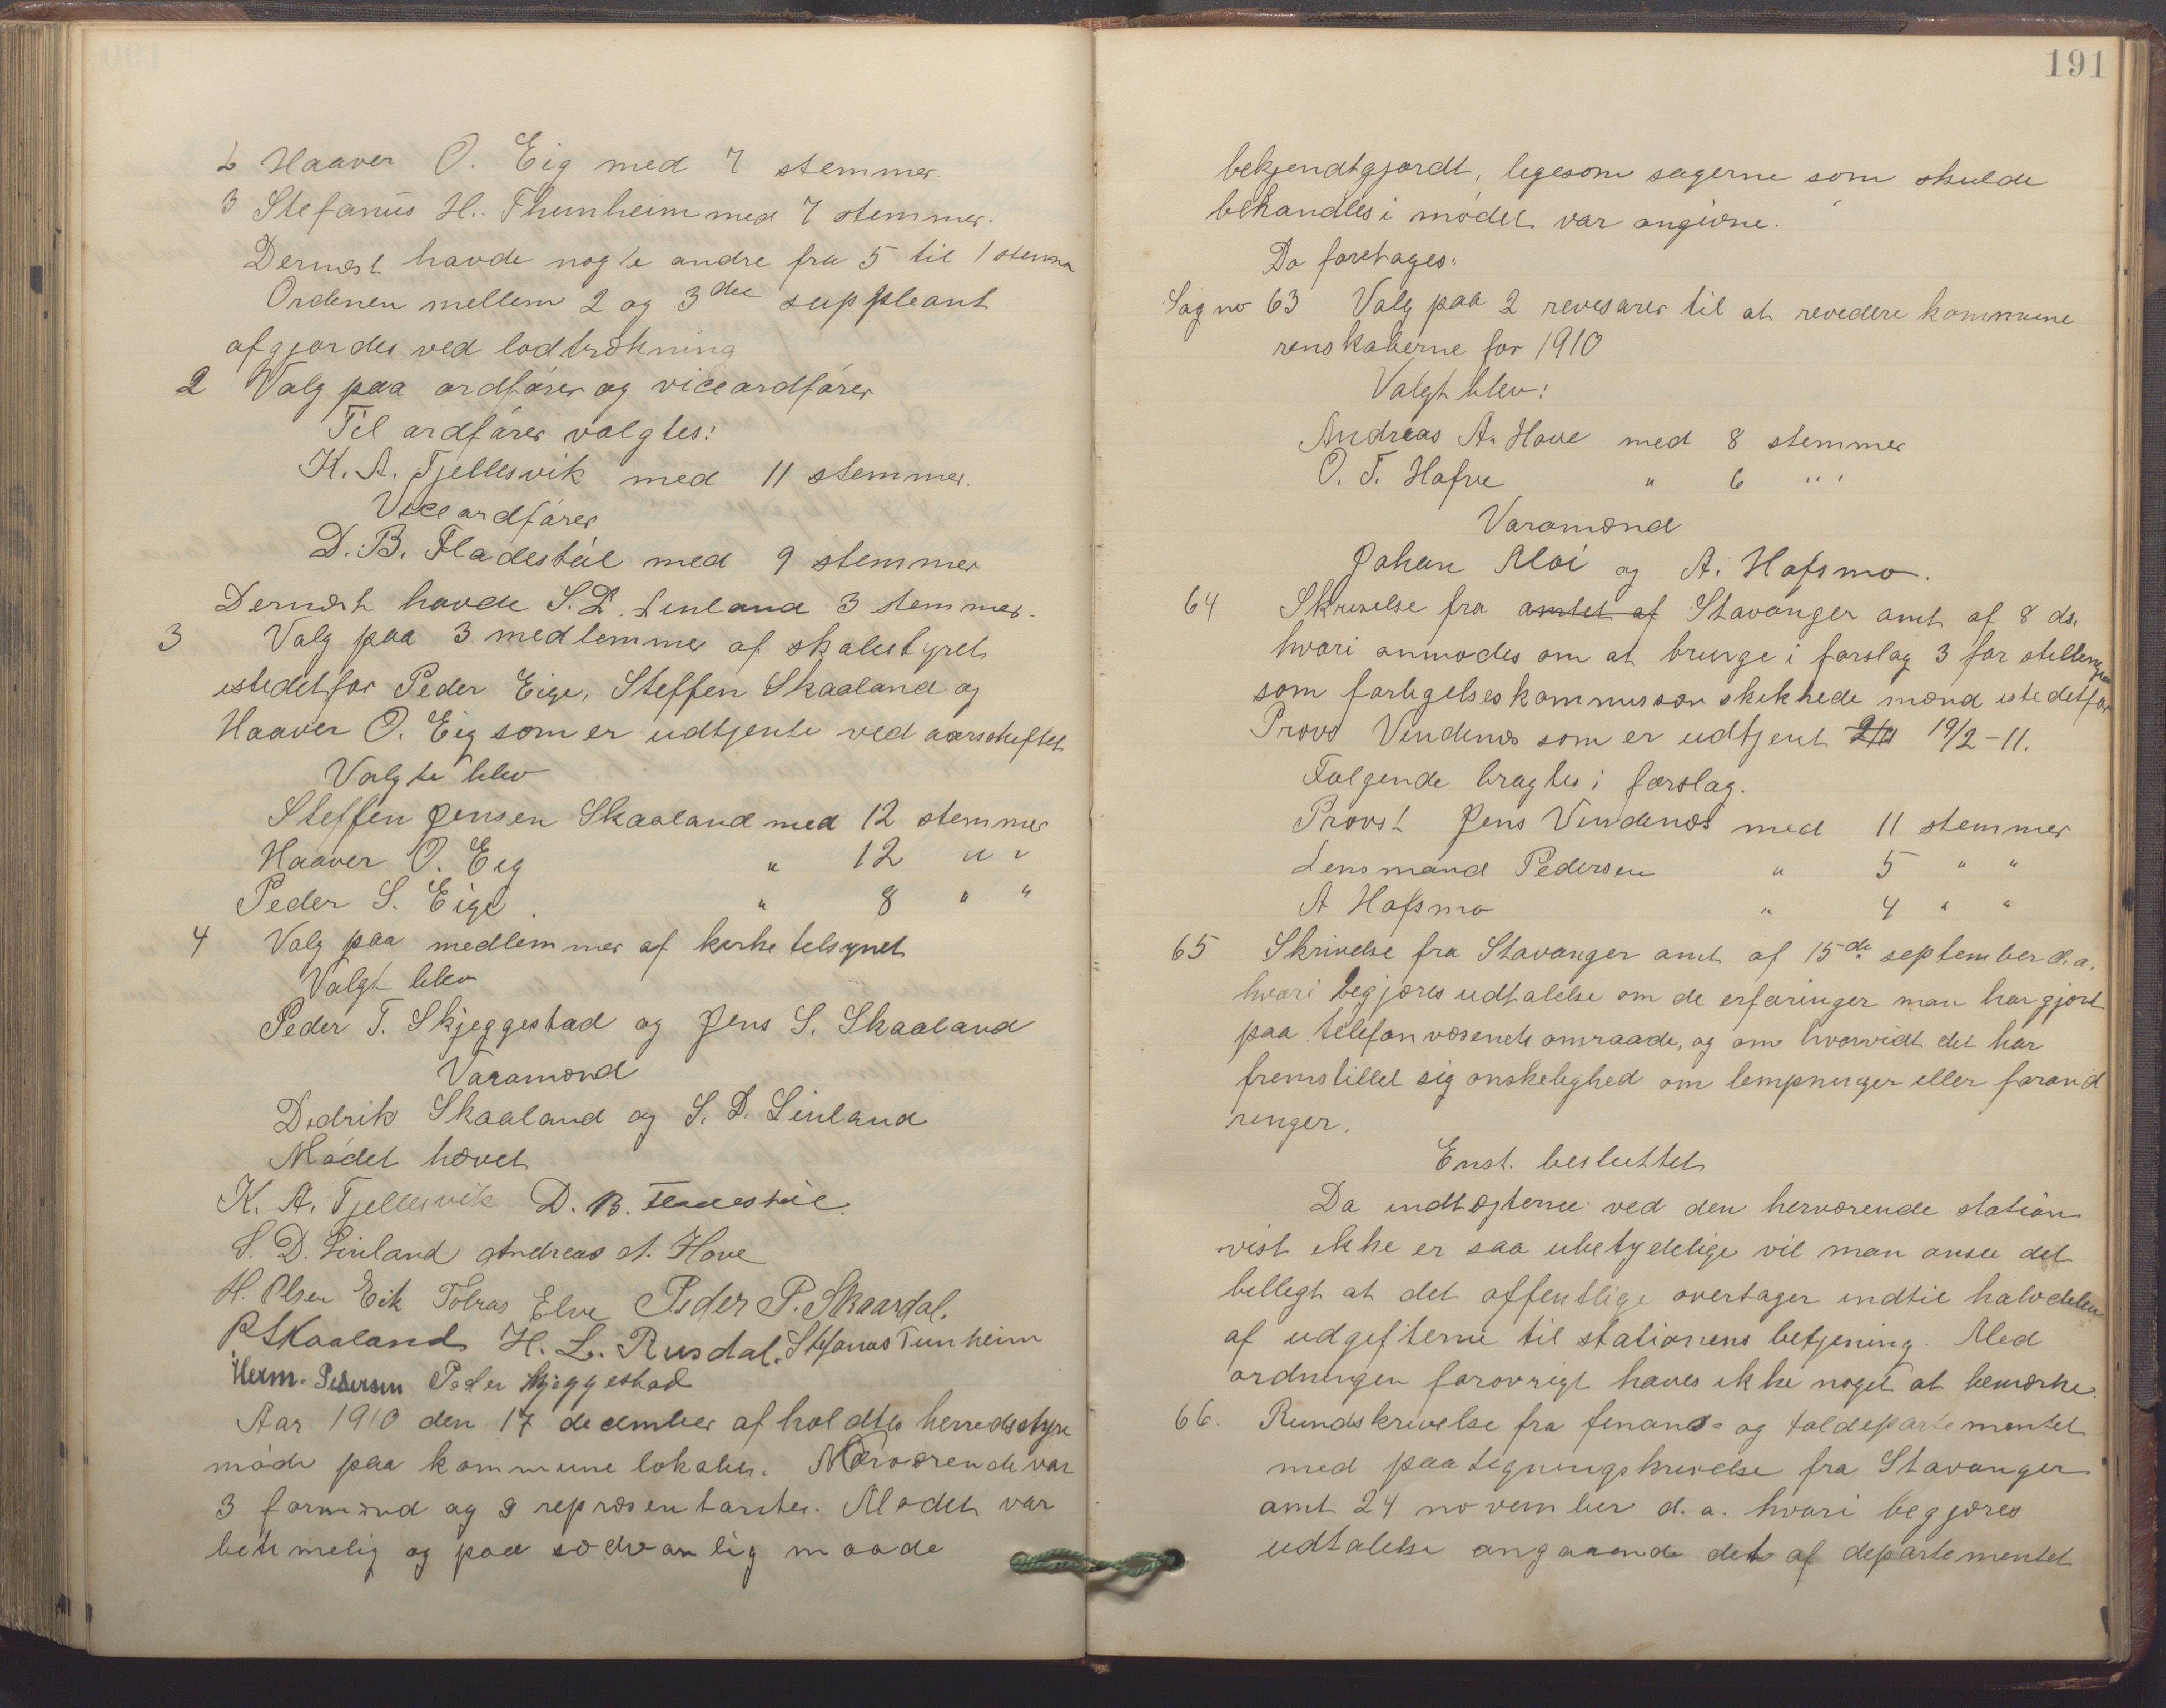 2 Haaver O. Eig med 7 stemmer.
3 Stefanus H. Thunheim med 7 stemmer.
Dernæst havde nogle andre fra 5 til 1 stemme
Ordenen mellem 2 og 3die suppleant
afgjordes ved lodtrækning
2 Valg paa ordfører og viceordfører
Til ordfører valgtes:
K. A. Tjellesvik med 11 stemmer.
Viceordfører
D. B. Fladestøl med 9 stemmer
Dernæst havde S. D. Linland 3 stemmer.
3 Valg paa 3 medlemmer af skolestyret
istedetfor Peder Eige, Steffen Skaaland og
Haaver O. Eig som er udtjente ved aarsskiftet
Valgte blev
Steffen Jensen Skaaland med 12 stemmer
Haaver O. Eig " 12 " "
Peder S. Eige. " 8 " "
4 Valg paa medlemmer af kirketilsynet
Valgt blev
Peder T. Skjeggestad og Jens S. Skaaland
Varamænd
Didrik Skaaland og S. D. Linland
Mødet hævet
K. A. Tjellesvik D. B. Fladestøl.
S. D. Linland Andreas A. Hove
H. Olsen Eik Tobias Elve Peder P. Skaardal.
P Skaaland H. L. Rusdal. Stefanus Tunheim
Herm. Pedersen Peder Skjeggestad
Aar 1910 den 17 december afholdtes herredsstyre
møde paa kommunelokalet. Nærværende var
3 formænd og 9 repræsentanter. Mødet var
betimelig og paa sædvanlig maade
191
bekjendtgjordt, ligesom sagerne som skulde
behandles i mødet var angivne.
Da foretages:
Sag no 63 Valg paa 2 revisorer til at revidere kommune
renskaberne for 1910
Valgt blev:
Andreas A. Hove med 8 stemmer
O. T. Hafve " 6 "
Varamænd
Johan Moi og A. Hofsmo.
64 Skrivelse fra amtet af Stavanger amt af 8 ds.
hvori anmodes om at bringe i forslag 3 for stillingen
som forligelseskommissær skikkede mænd istedetfor
Provst Vindenes som er udtjent 19/2-11.
Følgende bragtes i forslag.
Provst Jens Vindenæs med 11 stemmer
Lensmand Pedersen " 5 " "
A Hofsmo " 4 " "
65 Skrivelse fra Stavanger amt af 15de september d.a.
hvori begjæres udtalelse om de erfaringer man har gjort
paa telefonvæsenets omraade, og om hvorvidt det har
fremstillet sig ønskelighed om lempninger eller forand
ringer.
Enst. besluttet
Da indtægterne ved den herværende station
vist ikke er saa ubetydelige vil man anse det
billigt at det offentlige overtager indtil halvdelen
af udgifterne til stationens betjening. Med
ordningen forøvrigt haves ikke noget at bemærke.
66. Rundskrivelse fra finans- og tolddepartementet
med paategningskrivelse fra Stavanger
amt 24 november d. a. hvori begjæres
udtalelse angaaende det af departementet